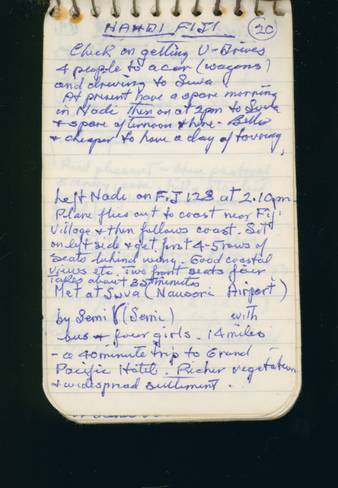 NANDI FIJI
20
Check on getting U-Drives
4 people to a car (wagons)
and driving to Suva
At present have a spare morning
in Nade then on at 2pm to Suva
& spare afternoon there. Better
& cheaper to have a day of touring
Left Nade on FIJ 123 at 2.10pm
Plane flies out to coast near Fiji
Village & then follows coast. Sit
on left side & get first 4-5 rows of
seats behind wing. Good coastal
views etc. two front seats four
Takes about 35 minutes
Met at Suva (Nausori Airport)
by Semi (Semi) with
bus + four girls. 14 miles
- a 40 minute trip to Grand
Pacific Hotel. Richer vegetation
& widespread settlement.